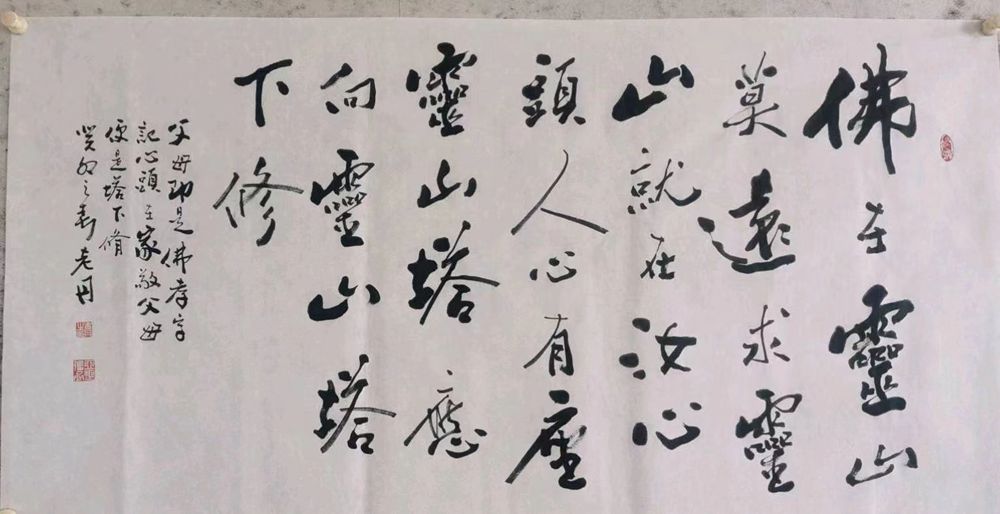 佛在靈山
莫遠求靈
山就在汝心
頭人心有座
靈山塔應
向靈山塔
下修
父母即是佛孝字
記心頭在家敬父母
便是塔下脩
癸卯之春老丹